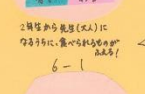 2年生から先生(大人)に
なるうちに、食べられるものが
ふえる!
6-1